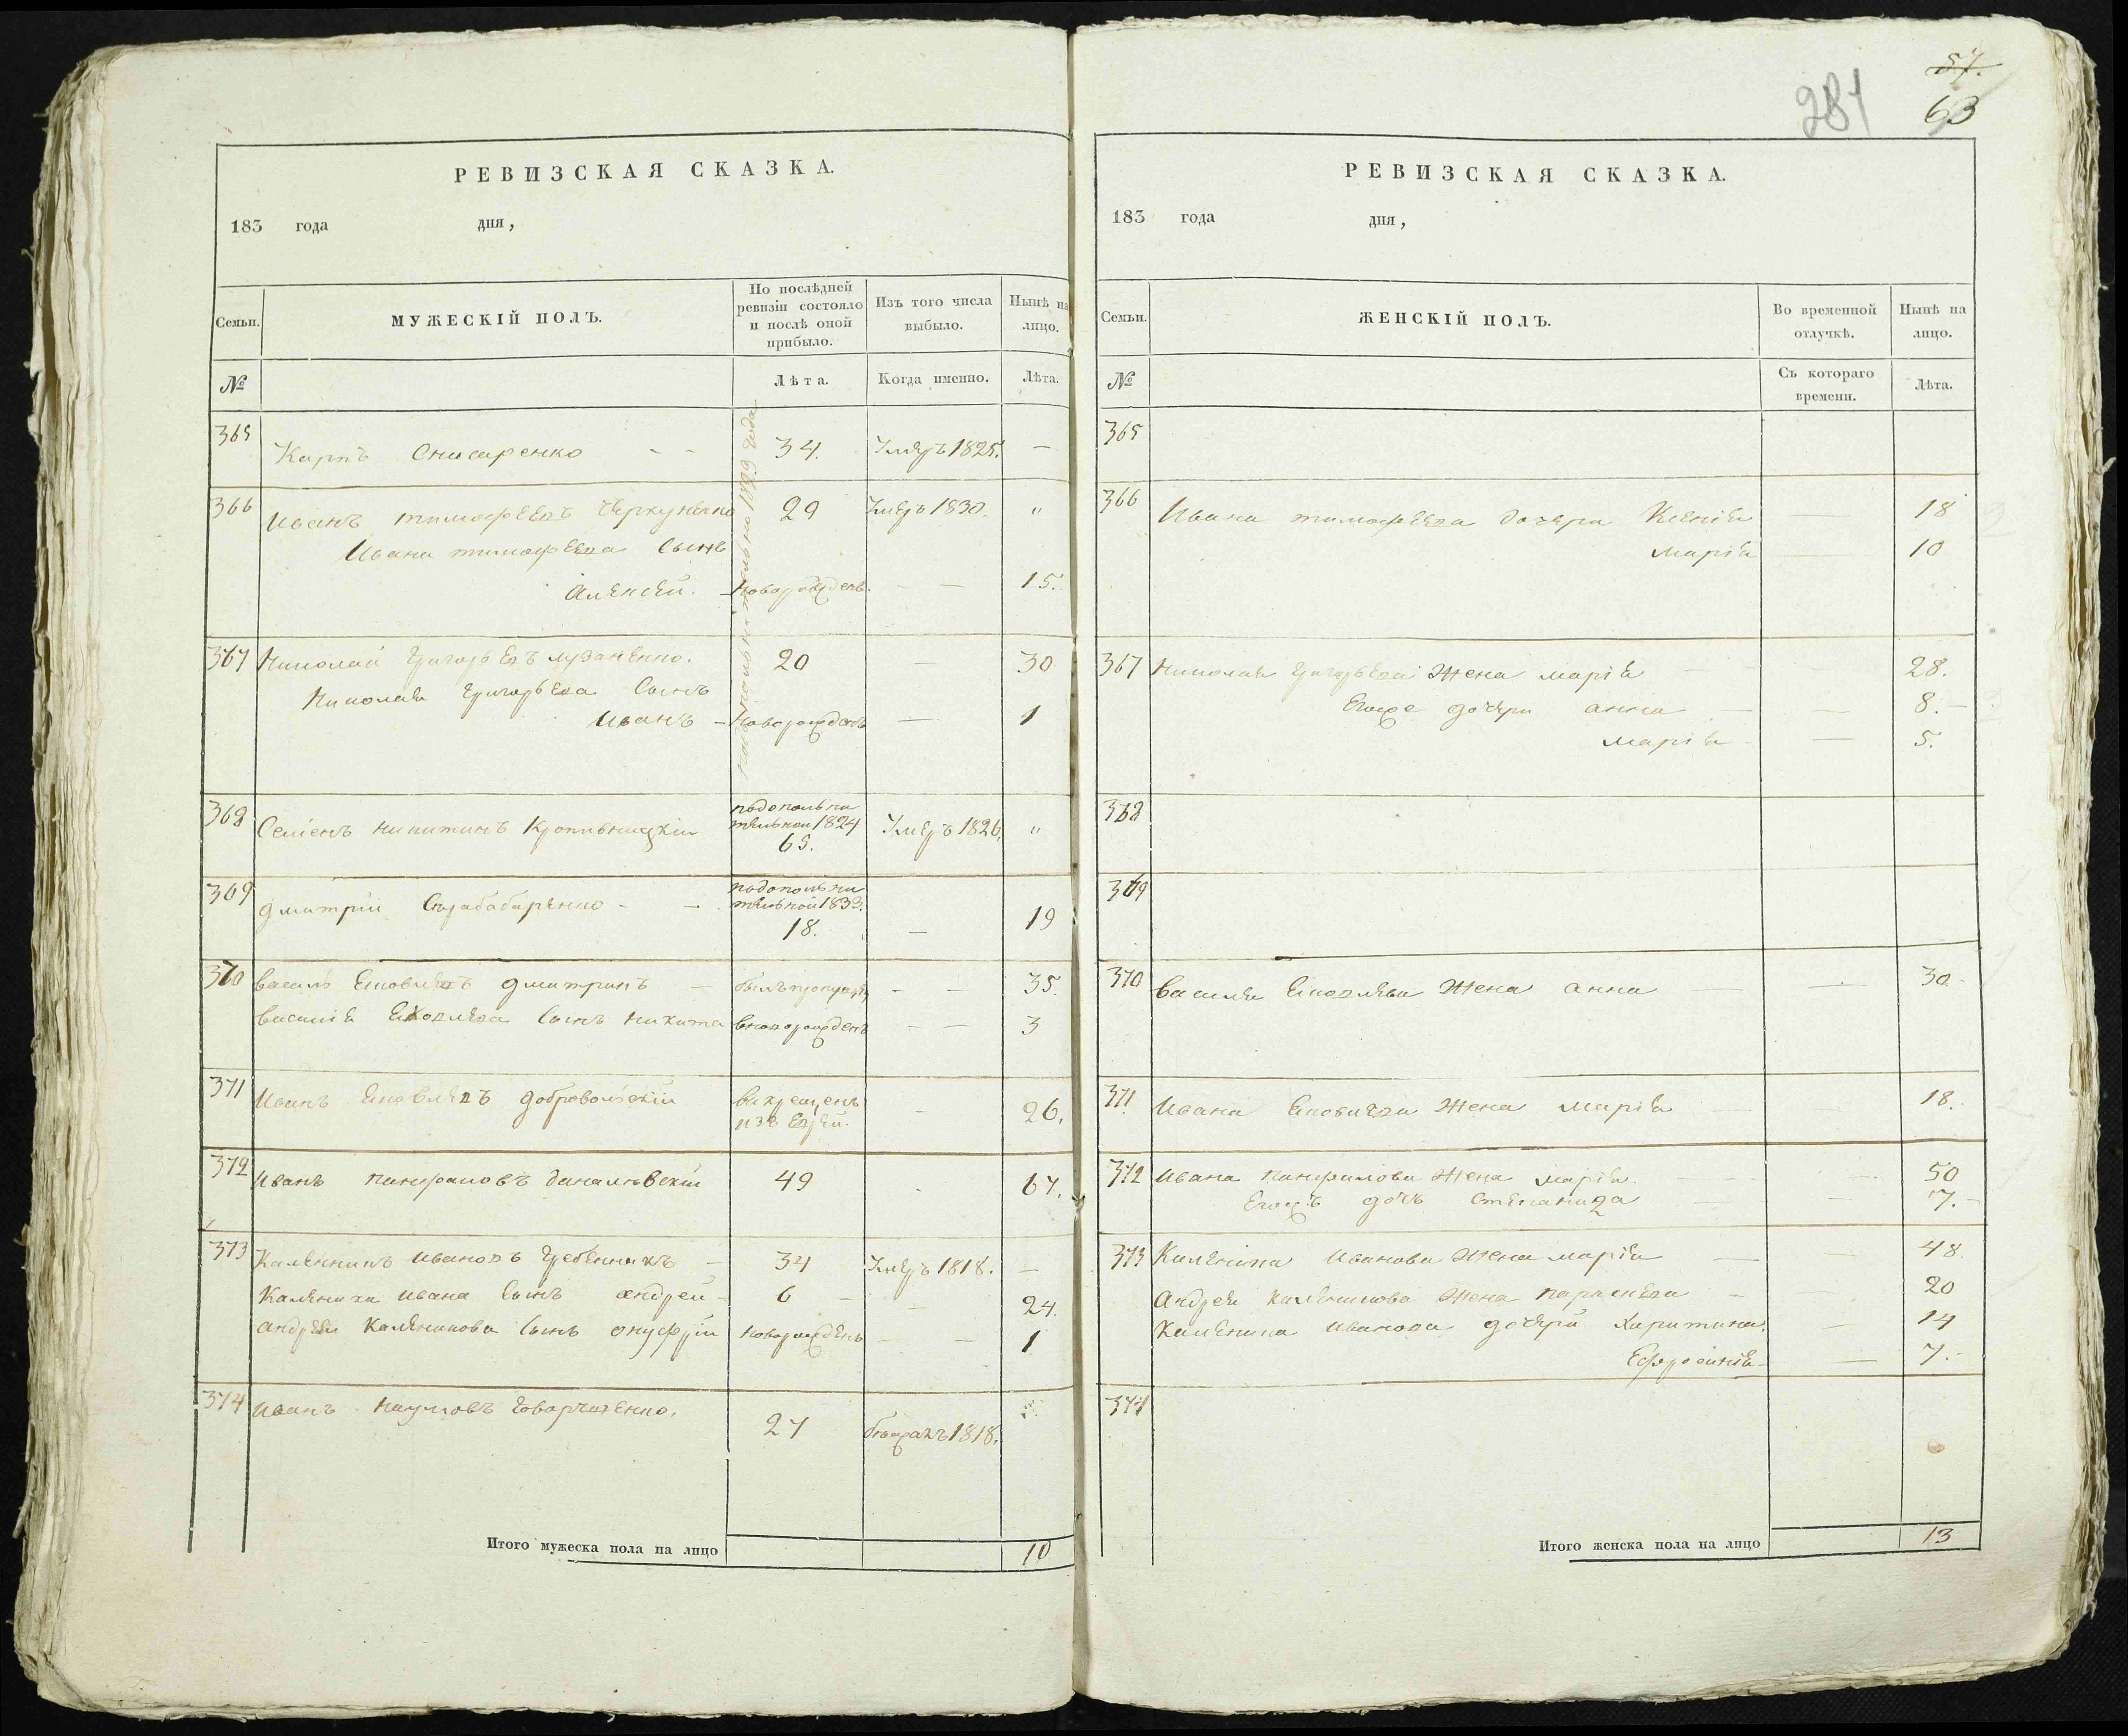 РЕВИЗСКАЯ СКАЗКА.
183 года дня,
Семьи. МУЖЕСКІЙ ПОЛЪ. По послѣдней ревизіи состояло и послѣ оной прибыло. Изъ того числа выбыло. Нынѣ на лицо.
№ Лѣта. Когда именно. Лѣта.
365 Карпъ Слисаренко - - 34. Умеръ 1825. —
366 Иванъ тимофеевъ 29 Умеръ 1830. "
Ивана тимофеева Сынъ
Алексей. - Новорожденъ. — — 15.
367 Николай Григорьевъ лузаненко. 20 — 30
Николая Григорьева Сынъ
Иванъ - Новорожденъ — 1
368 Семенъ никитинъ Кропивницкій
подополни
тельной 1824 Умеръ 1826. "
65.
369 дмитрій
подополни
тельной 1833.
18. — 19
370 василь Яковлевъ дмитринъ — былъ — — 35.
василія Яковлева Сынъ никита вноворожденъ — — 3
371 Иванъ Яковлевъ добровольскій выкрещенъ - 26.
изъ Еврей.
372 Иванъ панфиловъ 49 67.
373 Каленникъ Ивановъ Гребенникъ — 34 Умеръ 1818. —
Каленика Ивана Сынъ андрей - 6 — 24.
андрея Каленикова Сынъ онуфрій новорожденъ — — 1
374 Иванъ Наумовъ 27 бежалъ 1818.
Итого мужеска пола на лицо 10
57.
281 63
РЕВИЗСКАЯ СКАЗКА.
183 года дня,
Семьи. ЖЕНСКІЙ ПОЛЪ. Во временной отлучкѣ. Нынѣ на лицо.
№ Съ котораго времени. Лѣта.
365
366 Ивана тимофеева дочери Ксенія — 18
марія — 10
367 Николая Григорьева Жена марія — 28.
Егоже дочери анна — — 8.
марія — 5.
368
369
370 василя Яковлева Жена анна — — 30.
371 Ивана Яковлева Жена марія 18.
372 Ивана панфилова Жена марія. 50
Егожъ дочь Степанида 7.
373 Каленика Иванова Жена марія — 48.
Андрея Каленикова Жена параскева - 20
Каленика Иванова дочери Харитина. — 14
Ефросинія — 7.
374
Итого женска пола на лицо 13